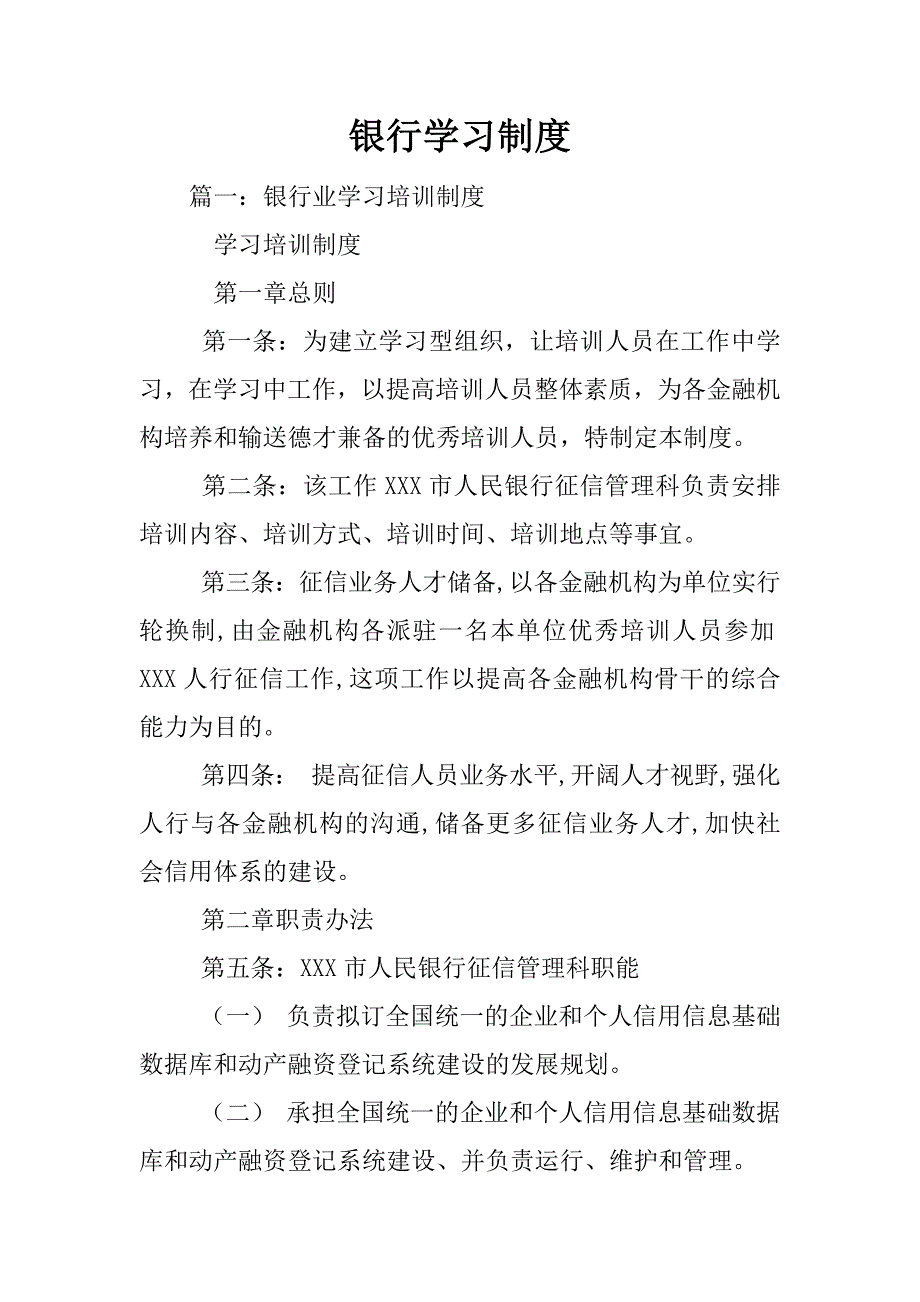 银行学习制度
篇一：银行业学习培训制度
学习培训制度
第一章总则
第一条：为建立学习型组织，让培训人员在工作中学
习，在学习中工作，以提高培训人员整体素质，为各金融机
构培养和输送德才兼备的优秀培训人员，特制定本制度。
第二条：该工作 XXX 市人民银行征信管理科负责安排
培训内容、培训方式、培训时间、培训地点等事宜。
第三条：征信业务人才储备,以各金融机构为单位实行
轮换制,由金融机构各派驻一名本单位优秀培训人员参加
XXX 人行征信工作,这项工作以提高各金融机构骨干的综合
能力为目的。
第四条： 提高征信人员业务水平,开阔人才视野,强化
人行与各金融机构的沟通,储备更多征信业务人才,加快社
会信用体系的建设。
第二章职责办法
第五条：XXX 市人民银行征信管理科职能
（一） 负责拟订全国统一的企业和个人信用信息基础
数据库和动产融资登记系统建设的发展规划。
（二） 承担全国统一的企业和个人信用信息基础数据
库和动产融资登记系统建设、并负责运行、维护和管理。